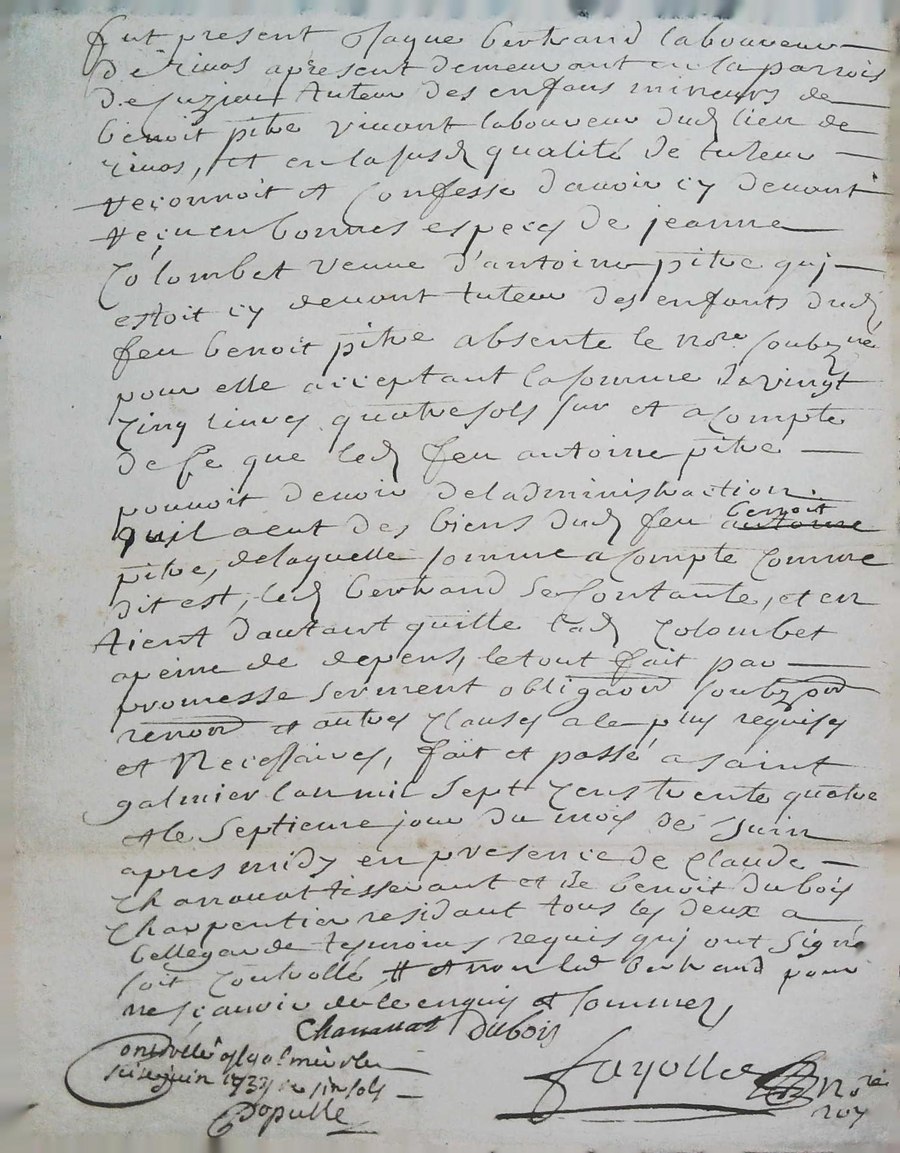 fut present Jaque bertrand laboureur
de rivas apresent demeurant en la parrois
de Cuzieu tuteur des enfans mineurs de
benoit pitre vivant laboureur dud lieu de
rivas, et en la susd qualité de tuteur
reconnoit et confesse d'avoir cy devant
reçu en bonnes especes de jeanne
Colombet veuve d'antoine pitre qui
estoit cy devant tuteur des enfants dud
feu benoit pitre absente le nore soubzné
pour elle acceptant la somme de vingt
cinq livres quatre sols sur et acompte
de ce que led feu antoine pitre
pouvoit devoir deladministraction
qu'il a eut des biens dud feu benoit
pitre, delaquelle somme acompte comme
dit est, led bertrand se contante, et en
tient d'autant quitte lad Colombet
apeine de depens, le tout fait par
promesse serment obligaon soubzon
renon et autres clauses a le plus requises
et Necessaires, fait et passé a saint
galmier lan mil sept cens trente quatre
et le septieme jour du mois de Juin
apres midy en presence de Claude
Charrouat tisserant et de benoit dubois
Charpentier residant tous les deux a
bellegarde tesmoins requis qui ont signé
soit controllé et non led bertrand pour
ne sçavoir de ce enquis et sommez
Charrouat dubois
Controllé a St galmier le
juin 173 sols
fayolle Nore
roy
Dopulle